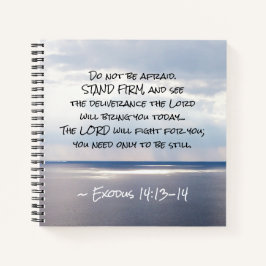 Do not be afraid.
STAND FIRM, and see
the deliverance the Lord
will bring you today...
The LORD will fight for you;
you need only to be still.
~ Exodus 14:13-14